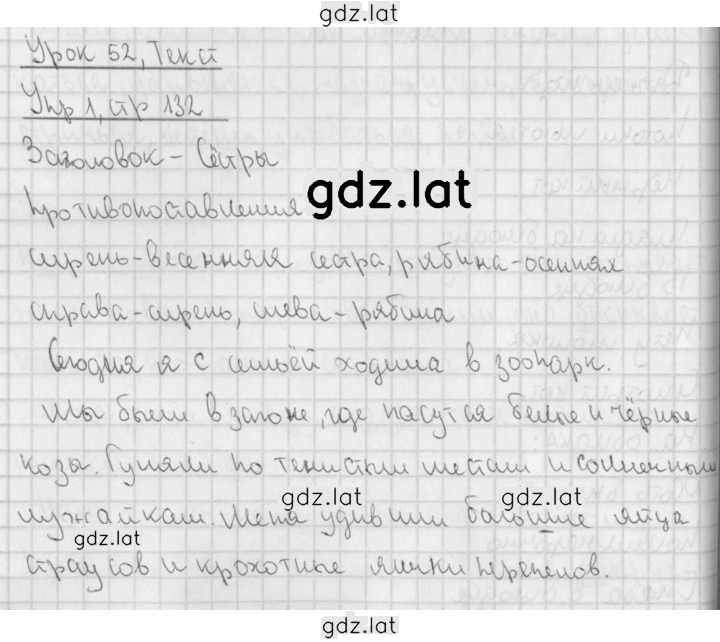 gdz.lat
Урок 52, Текст
Упр 1, стр 132
Заголовок - Сёстры
gdz.lat
Противопоставления
сирень-весенняя сестра, рябина-осенняя
справа-сирень, слева-рябина
Сегодня я с семьёй ходила в зоопарк.
Мы были в загоне, где пасутся белые и чёрные
козы. Гуляли по тенистым местам и солнечным
gdz.lat
gdz.lat
лужайкам. Меня удивили большие яйца
gdz.lat
страусов и крохотные яички перепелов.
gdz.lat